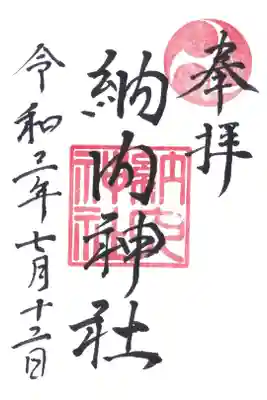 奉拝
納内神社
令和二年七月十二日
納内
神社